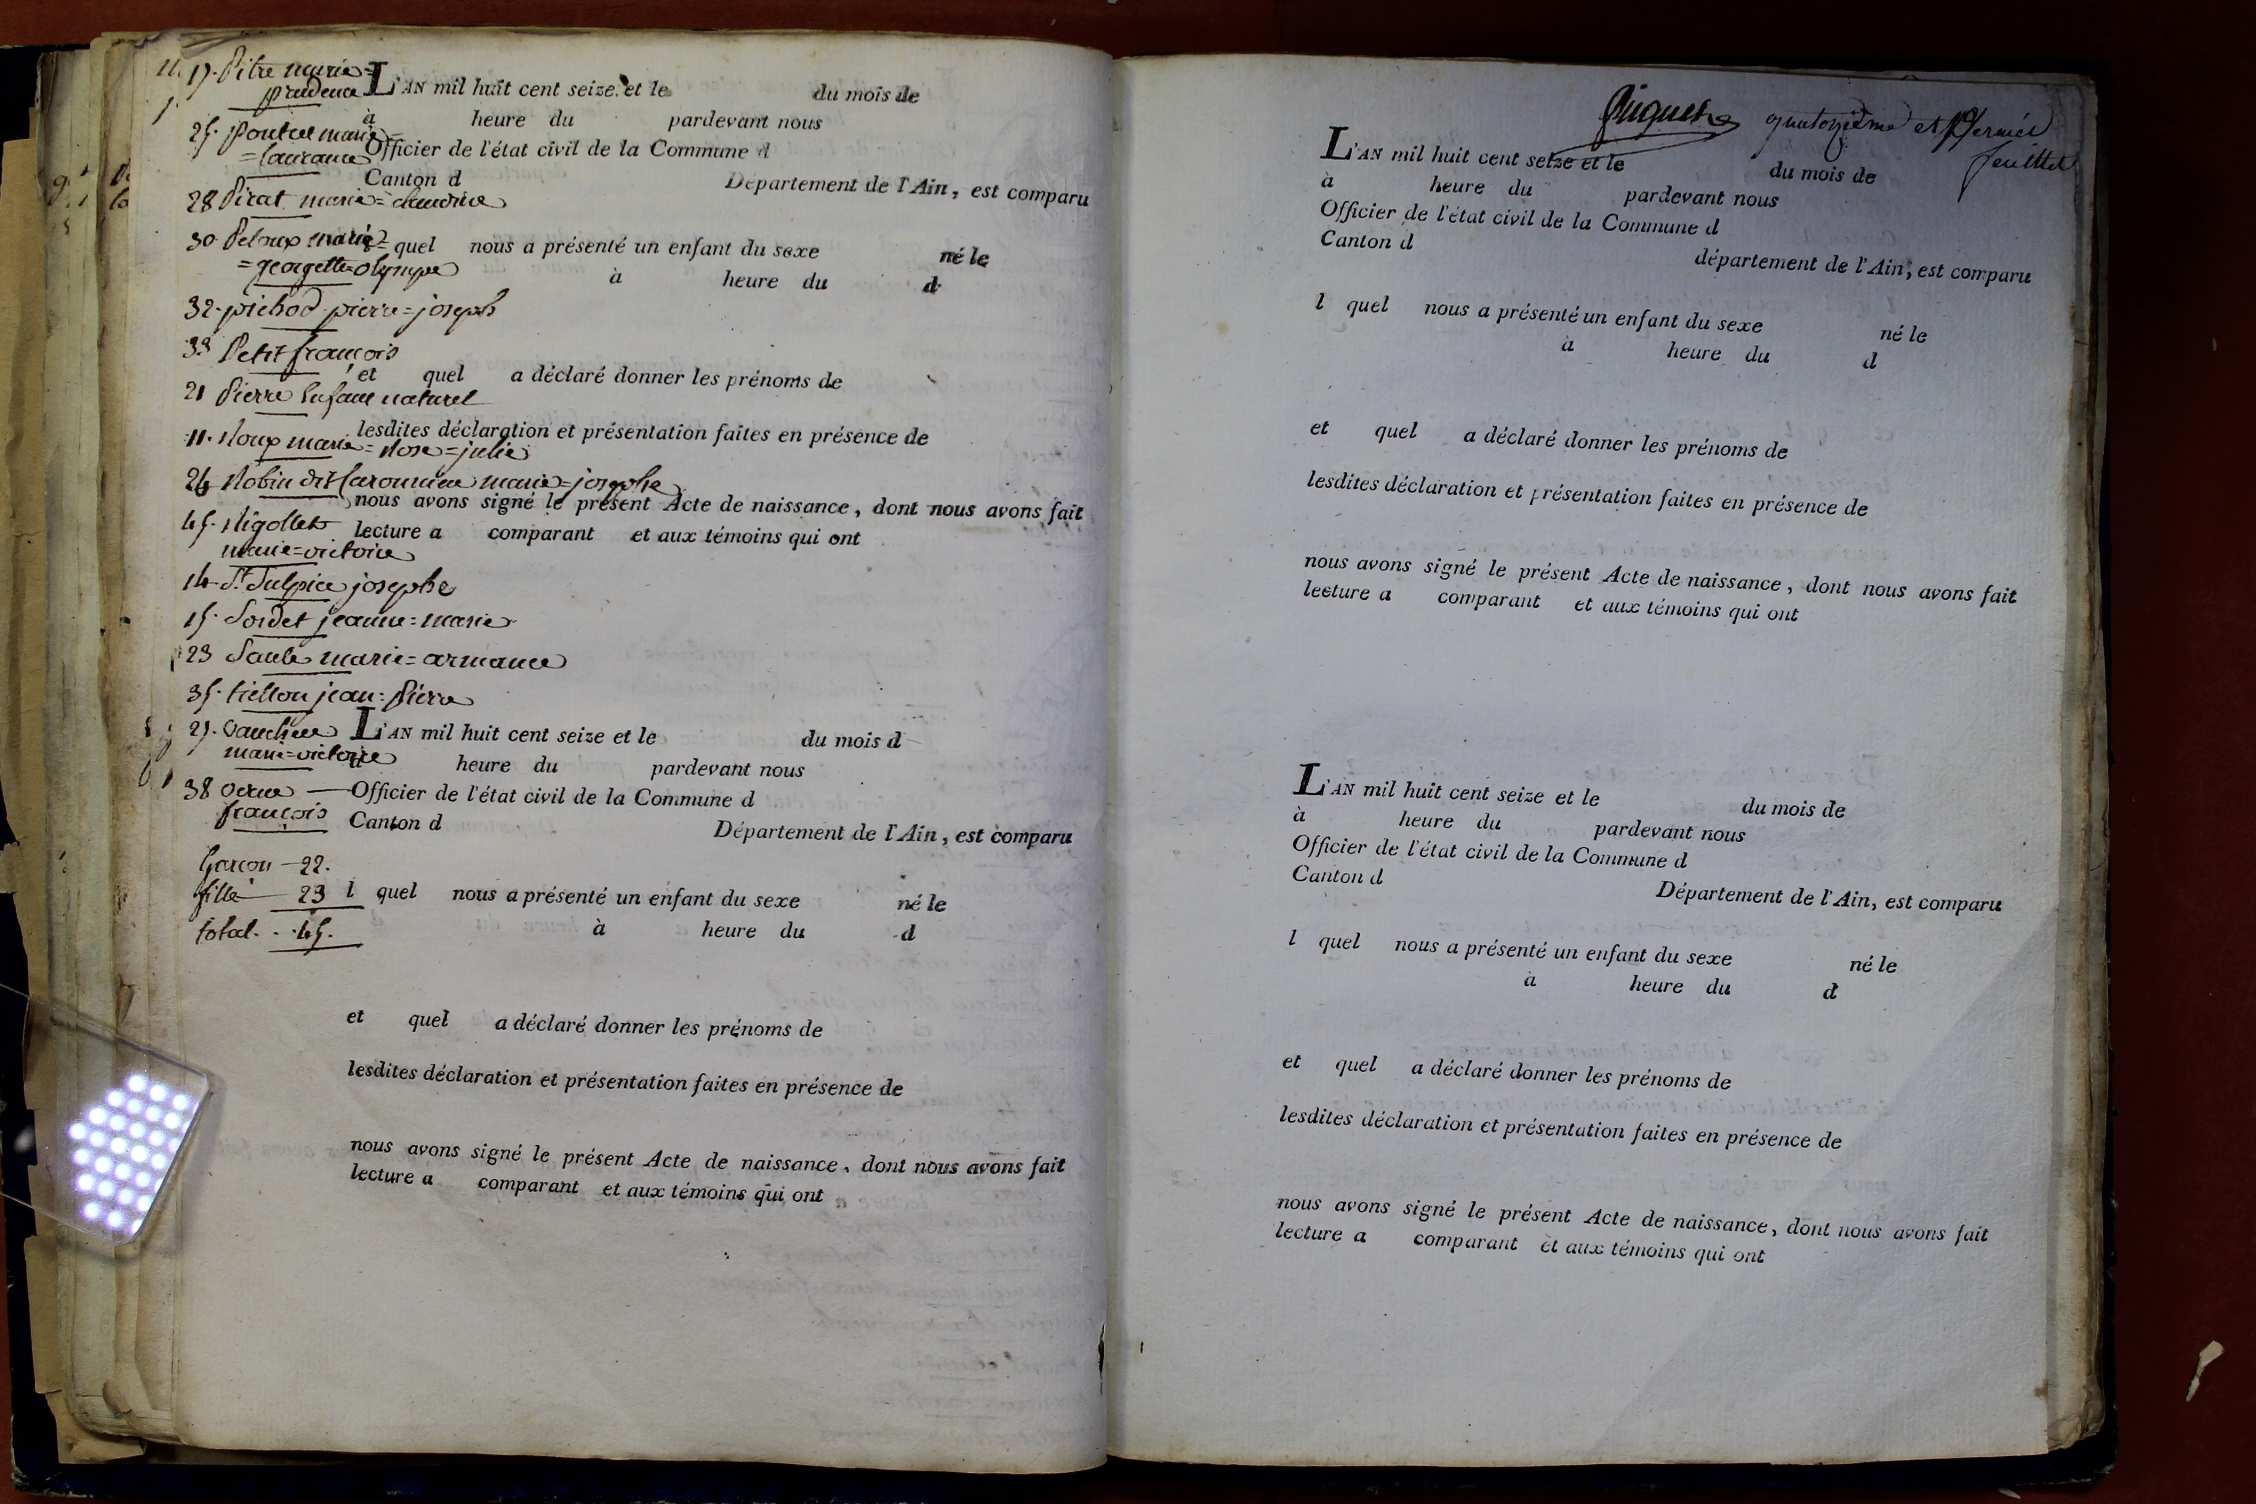 17. Pitre marie=
prudence
L'AN mil huit cent seize et le du mois de
à heure du pardevant nous
25. poncet marie
=laurance
Officier de l'état civil de la Commune d
Canton d Département de l'Ain, est comparu
28 Pirat marie=claudine
30. Peloux marie
quel nous a présenté un enfant du sexe né le
=georgette=olympe
à heure du d
32. pichod pierre=joseph
33 Petit françois
et quel a déclaré donner les prénoms de
21 Pierre Enfant naturel
lesdites déclaration et présentation faites en présence de
11. Roux marie=Rose=julie
24 Robin dit marie=josephe
nous avons signé le présent Acte de naissance, dont nous avons fait
45. Rigollet
lecture a comparant et aux témoins qui ont
marie=victoire
14 St. Sulpice josephe
15. Sordet jeanne=marie
23 Saule marie=armance
35. tiellon jean=Pierre
L'AN mil huit cent seize et le du mois d
marie=victoire
heure du pardevant nous
38 verne
Officier de l'état civil de la Commune d
françois
Canton d Département de l'Ain, est comparu
Garcon — 22.
fille — 23
l quel nous a présenté un enfant du sexe né le
total. . . 45.
à heure du d
et quel a déclaré donner les prénoms de
lesdites déclaration et présentation faites en présence de
nous avons signé le présent Acte de naissance, dont nous avons fait
lecture a comparant et aux témoins qui ont
quatorzième et Dernier
feuillet
L'AN mil huit cent seize et le du mois de
à heure du pardevant nous
Officier de l'état civil de la Commune d
Canton d département de l'Ain, est comparu
l quel nous a présenté un enfant du sexe né le
à heure du d
et quel a déclaré donner les prénoms de
lesdites déclaration et présentation faites en présence de
nous avons signé le présent Acte de naissance, dont nous avons fait
lecture a comparant et aux témoins qui ont
L'AN mil huit cent seize et le du mois de
à heure du pardevant nous
Officier de l'état civil de la Commune d
Canton d Département de l'Ain, est comparu
l quel nous a présenté un enfant du sexe né le
à heure du d
et quel a déclaré donner les prénoms de
lesdites déclaration et présentation faites en présence de
nous avons signé le présent Acte de naissance, dont nous avons fait
lecture a comparant et aux témoins qui ont